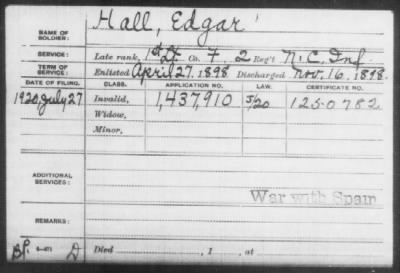 NAME OF SOLDIER: Hall, Edgar
SERVICE: Late rank, 1st Lt Co. F, 2 Reg't N.C. Inf
TERM OF SERVICE: Enlisted April 27, 1898 Discharged Nov. 16, 1898.
DATE OF FILING. CLASS. APPLICATION NO. LAW. CERTIFICATE NO.
1920, July 27 Invalid, 1,437,910 1250782
Widow,
Minor,
ADDITIONAL SERVICES:
War with Spain
REMARKS:
Died , 1 , at